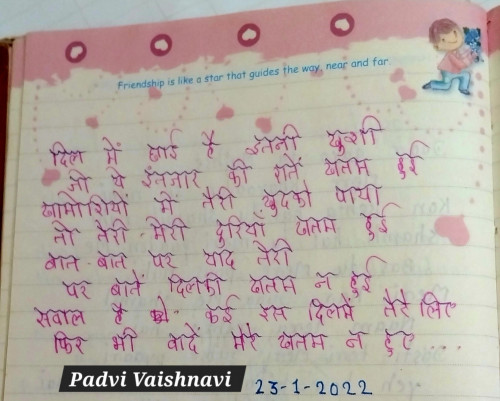 Friendship is like a star that guides the way, near and far.
दिल में छाई है इतनी खुशी
जो ये इनजार की रातें खतम हुई
खामोशियों में तेरी खुदको पाया
तो तेरी मेरी दुरियाँ खतम हुई
बात-बात पर याद तेरी
पर बातें दिलकी खतम न हुई
सवाल है कई इस दिलमें तेरे लिए
फिर भी वादें मेरे खतम न हुए ....
Padvi Vaishnavi
23-1-2022